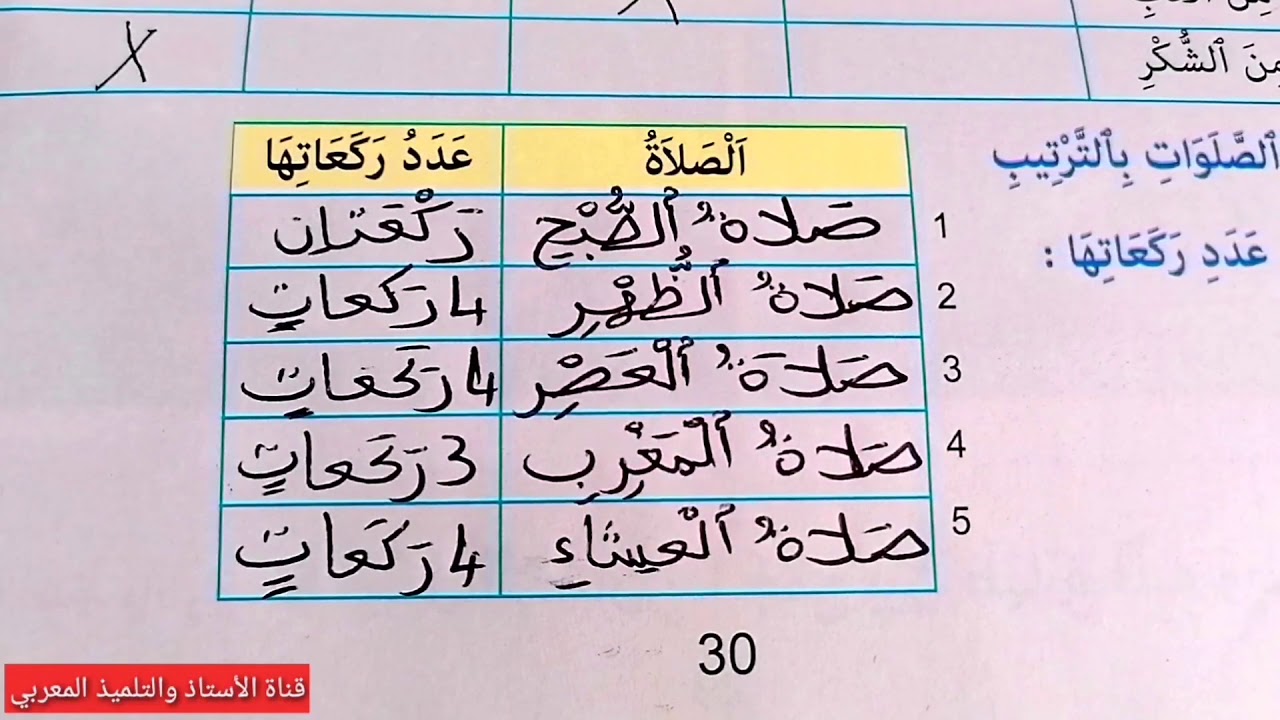 مِنَ ٱلشُّكْرِ X
ٱلصَّلَوَاتِ بِٱلتَّرْتِيبِ
عَدَدِ رَكَعَاتِهَا :
اَلْصَلاَةُ عَدَدُ رَكَعَاتِهَا
1 صَلاةُ ٱلصُّبْحِ رَكْعَتانِ
2 صَلاةُ ٱلظُّهْرِ 4 رَكَعاتٍ
3 صَلاةُ ٱلْعَصْرِ 4 رَكَعاتٍ
4 صَلاةُ ٱلْمَغْرِبِ 3 رَكَعاتٍ
5 صَلاةُ ٱلْعِشَاءِ 4 رَكَعاتٍ
30
قناة الأستاذ والتلميذ المغربي